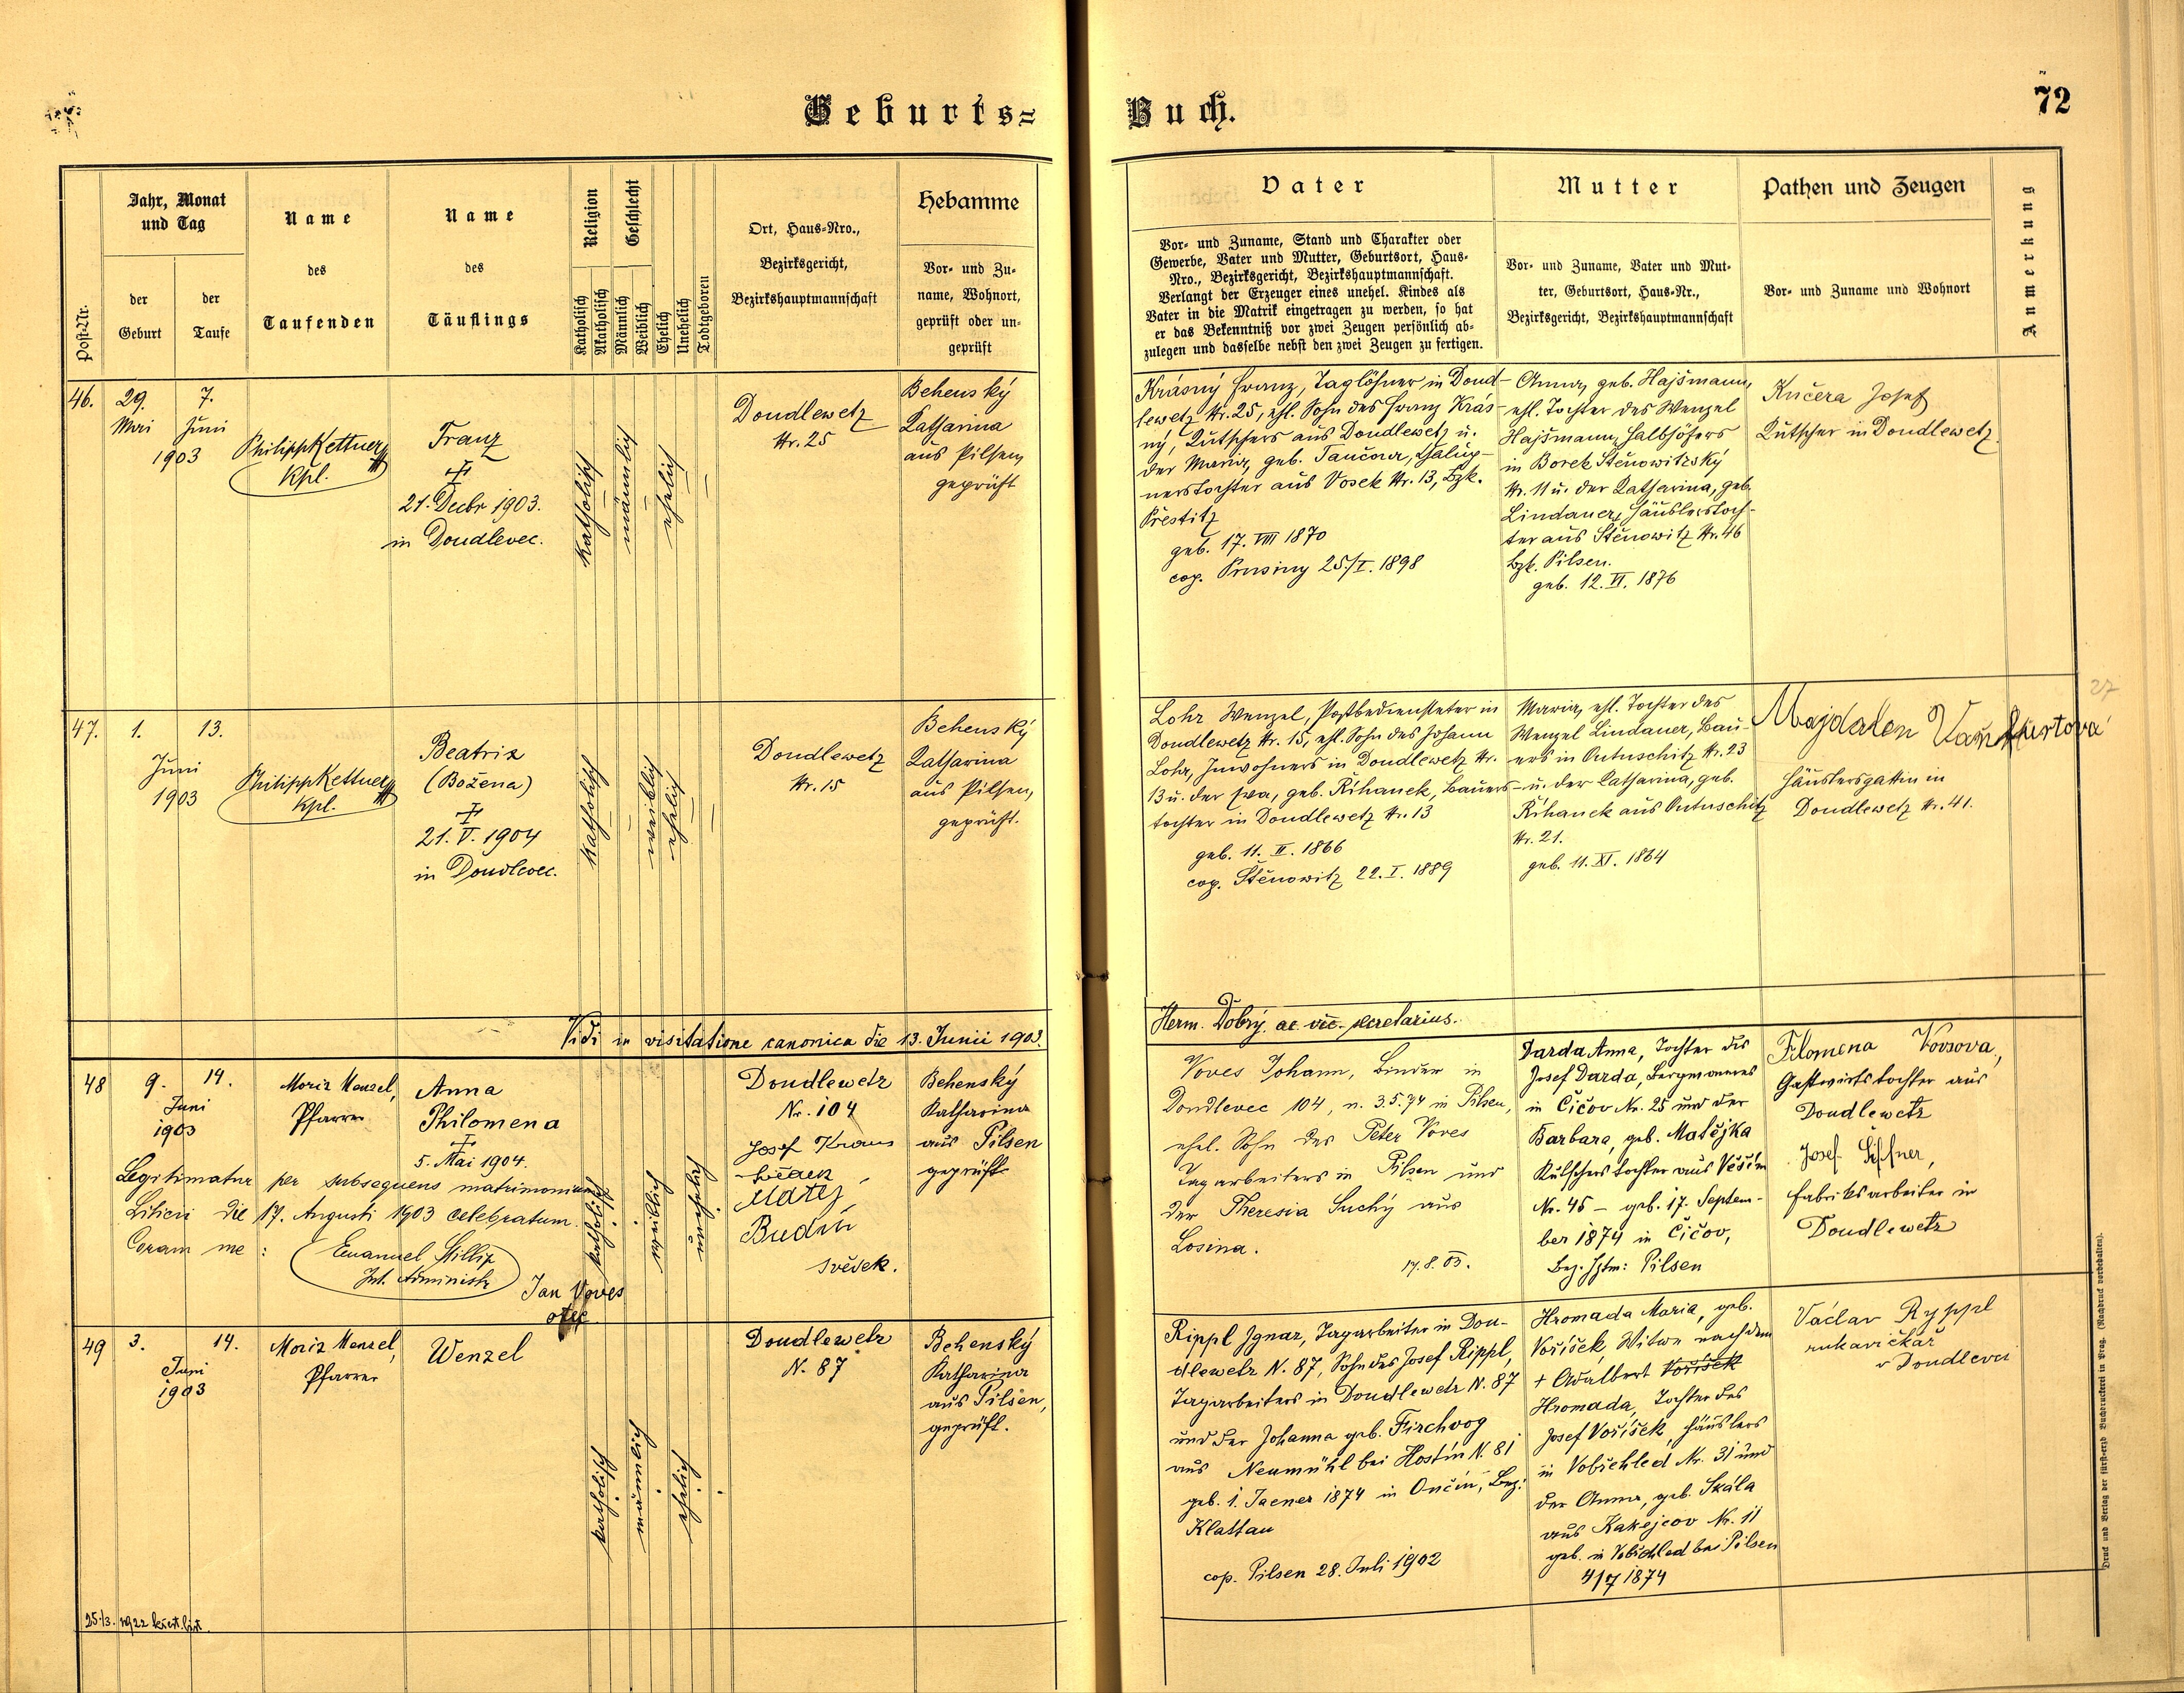 Geburts=
Buch.
72
Post-Nr.
Jahr, Monat
und Tag
der
Geburt
der
Taufe
Name
des
Taufenden
Name
des
Täuflings
Religion
Katholisch
Akatholisch
Geschlecht
Männlich
Weiblich
Ehelich
Unehelich
Todtgeboren
Ort, Haus-Nro.,
Bezirksgericht,
Bezirkshauptmannschaft
Hebamme
Vor- und Zu-
name, Wohnort,
geprüft oder un-
geprüft
Vater
Vor- und Zuname, Stand und Charakter oder
Gewerbe, Vater und Mutter, Geburtsort, Haus-
Nro., Bezirksgericht, Bezirkshauptmannschaft.
Verlangt der Erzeuger eines unehel. Kindes als
Vater in die Matrik eingetragen zu werden, so hat
er das Bekenntniß vor zwei Zeugen persönlich ab-
zulegen und dasselbe nebst den zwei Zeugen zu fertigen.
Mutter
Vor- und Zuname, Vater und Mut-
ter, Geburtsort, Haus-Nr.,
Bezirksgericht, Bezirkshauptmannschaft
Pathen und Zeugen
Vor- und Zuname und Wohnort
Anmerkung
46.
29.
Mai
7.
Juni
1903
Philipp Kettner
Kpl.
Franz
†
21. Decbr 1903.
in Doudlevec.
katholisch
männlich
ehelich
Doudlewetz
Nr. 25
Behenský
Katharina
aus Pilsen,
geprüft
Krásný Franz, Taglöhner in Doud-
lewetz Nr. 25, ehl. Sohn des Franz Krás-
ný, Kutschers aus Doudlewetz u.
der Maria, geb. Taučova, Chalup-
nerstochter aus Vosek Nr. 13, Bzk.
Přestitz
geb. 17. VIII 1870
cop. Prusiny 25/I. 1898
Anna, geb. Hajšmann,
ehl. Tochter des Wenzel
Hajšmann, Halbhöfers
in Borek Stěnowitzský
Nr. 11 u. der Katharina, geb.
Lindauer, Häuslerstoch-
ter aus Stěnowitz Nr. 46
Bzk. Pilsen.
geb. 12. VI. 1876
Kučera Josef
Kutscher in Doudlewetz
47.
1.
13.
Juni
1903
Philipp Kettner
Kpl.
Beatrix
(Božena)
†
21. V. 1904
in Doudlevec.
katholisch
weiblich
ehelich
Doudlewetz
Nr. 15
Behenský
Katharina
aus Pilsen,
geprüft.
Lohr Wenzel, Postbediensteter in
Doudlewetz Nr. 15, ehl. Sohn des Johann
Lohr, Inwohners in Doudlewetz Nr.
13 u. der Eva, geb. Říhanek, Bauers-
tochter in Doudlewetz Nr. 13
geb. 11. II. 1866
cop. Stěnowitz 22. I. 1889
Maria, ehl. Tochter des
Wenzel Lindauer, Bau-
ers in Outuschitz Nr. 23
u. der Katharina, geb.
Říhanek aus Outuschitz
Nr. 21.
geb. 11. XI. 1864
Majdalen
Häuslersgattin in
Doudlewetz Nr. 41.
27
Vidi in visitatione canonica die 13. Junii 1903.
Herm. Dobrý ac vic. secretarius.
48
9.
14.
Juni
1903
Moriz Menzel,
Pfarrer
Anna
Philomena
†
5. Mai 1904.
Legitimatur per subsequens matrimonium
Liticii die 17. Augusti 1903 celebratum.
Coram me:
Emanuel
Int. Administr
Jan Voves
otec
katholisch
weiblich
unehelich
Doudlewetz
Nr. 104
Josef Kraus
svědek
Matěj
Budín
svědek.
Behenský
Katharina
aus Pilsen
geprüft
Voves Johann, Binder in
Doudlevec 104, n. 3.5.74 in Pilsen,
ehel. Sohn des Peter Voves
Tagarbeiters in Pilsen und
der Theresia Suchý aus
Losina.
17. 8. 03.
Darda Anna, Tochter des
Josef Darda, Bergmannes
in Čičov Nr. 25 und der
Barbara, geb. Matějka
Kutscherstochter aus
Nr. 45 – geb. 17. Septem-
ber 1874 in Čičov,
Bez. Hptm: Pilsen
Filomena Vovsova,
Gastwirtstochter aus
Doudlewetz
Josef
Fabriksarbeiter in
Doudlewetz
49
3.
14.
Juni
1903
Moriz Menzel,
Pfarrer
Wenzel
katholisch
männlich
ehelich
Doudlewetz
N. 87
Behenský
Katharina
aus Pilsen,
geprüft.
Rippl Ignaz, Tagarbeiter in Dou-
dlewetz N. 87, Sohn des Josef Rippl,
Tagarbeiters in Doudlewetz N. 87
und der Johanna geb. Firchvog
aus Neumühl bei Hostín N. 81
geb. 1. Jaener 1874 in Ončín, Bez:
Klattau
cop. Pilsen 28. Juli 1902
Hromada Maria, geb.
Voříšek, Witwe nach dem
+ Adalbert Voříšek
Hromada, Tochter des
Josef Voříšek, Häuslers
in Vobichled Nr. 31 und
der Anna, geb. Skála
aus Kakejcov Nr. 11
geb. in Vobichled bei Pilsen
4/7 1874
Václav Ryppl
rukavičkář
v Doudlevci
25./3. 1922 křest. list.
Druck und Verlag der fürst-erzb Buchdruckerei in Prag. (Nachdruck vorbehalten).